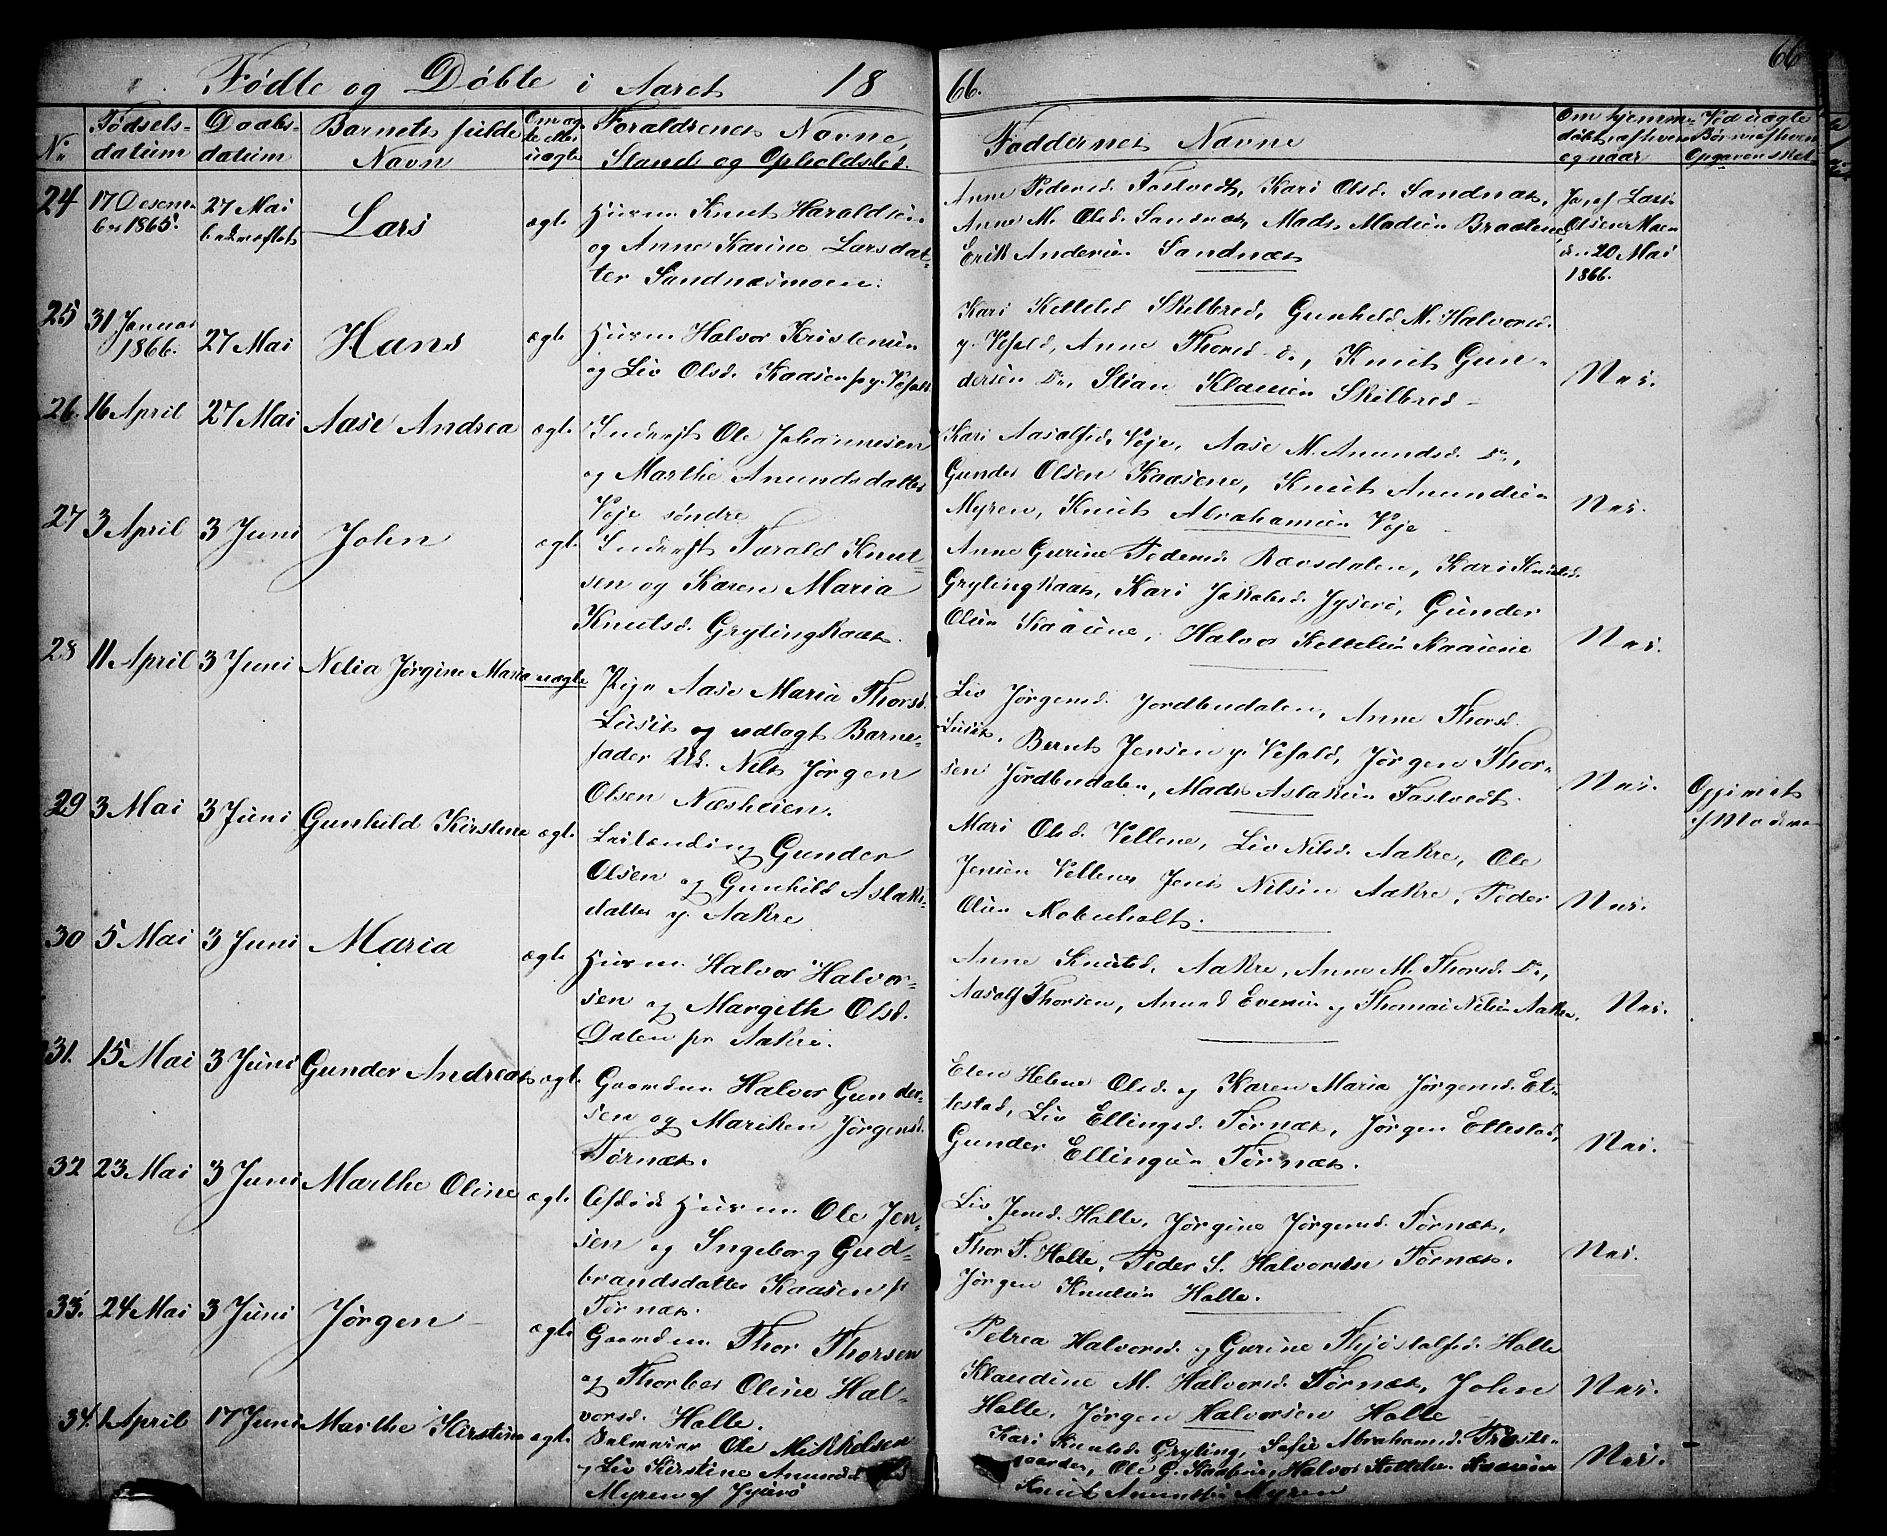 66
Fødte og Døbte i Aaret 1866.
No
Fødselsdatum
Daabsdatum
Barnets fulde Navn
Om ægte eller uægte
Forældrenes Navne, Stand og Opholdssted.
Faddernes Navne
Om hjemmedøbt, af hvem og naar
Ved uægte Børn af hvem Opgaven sket
24
17 Desember 1865.
27 Mai bekræftet
Lars
ægte
Huusm. Knut Haraldsen
og Anne Karine Larsdat-
ter Sandnæsmoen.
Anne Pedersd. Tostvedt, Kari Olsd. Sandnæs,
Anne M. Olsd. Sandnæs, Mads Madsen Braatene
Erik Andersen Sandnæs
Josef Lars
Olsen Moen
den 20 Mai
1866.
25
31 Januar 1866.
27 Mai
Hans
ægte
Huusm. Halvor Kristensen
og Liv Olsd. Kaasen p. y. Vefald
Kari Kittelsd. Skilbred, Gunhild M. Halvorsd.
y. Vefald, Anne Thorsd. do, Knut Gun-
dersen Do, Stian Klausen Skilbred
Nei.
26.
16 April
27 Mai
Aase Andrea
ægte
Inderst Ole Johannesen
og Marthe Anundsdatter
Voje søndre
Kari Aasolfsd. Voje, Aase M. Anundsd. Do,
Gunder Olsen Kaasene, Knut Anundsen
Myren, Knut Abrahamsen Voje
Nei.
27
3 April
3 Juni
John
ægte
Inderst Tarald Knut-
sen og Karen Maria
Knutsd. Grytingkaas.
Anne Gurine Pedersd. Ravsdalen, Kari Knutsd.
Grytingkaas, Kari Jakobsd. Jyserø, Gunder
Olsen Kaasene, Halvor Kittelsen Kaasene
Nei.
28
11 April
3 Juni
Nelia Jørgine Maria
uægte
Pige Aase Maria Thorsd.
Lusit og udlagt Barne-
fader Uk. Nils Jørgen
Olsen Næsheien.
Liv Jørgensd. Jordbudalen, Anne Thorsd.
Lusit, Bernt Jensen y. Vefald, Jørgen Thor-
sen Jordbudalen, Mads Aslaksen Tostvedt.
Nei.
Opgivet
af Moderen
29
3 Mai
3 Juni
Gunhild Kirstine
ægte
Leilænding Gunder
Olsen og Gunhild Aslaks-
datter y. Aakre
Mari Olsd. Vellene, Liv Nilsd. Aakre, Ole
Jensen Vellene, Jens Nilsen Aakre, Peder
Olsen Kobenholt.
Nei.
30
5 Mai
3 Juni
Maria
ægte
Huusm. Halvor Halvor-
sen og Margith Olsd.
Dalen pr Aakre.
Anne Knutsd. Aakre, Anne M. Thorsd. Do,
Aasolf Thorsen, Anund Evensen og Thomas Nilsen Aakre.
Nei.
31.
15 Mai
3 Juni
Gunder Andreas
ægte
Gaardm. Halvor Gunder-
sen og Mariken Jørgensd.
Tørnæs.
Elen Helene Olsd. og Karen Maria Jørgensd. El-
lestad, Liv Ellingsd. Tørnæs, Jørgen Ellestad,
Gunder Ellingsen Tørnæs.
Nei.
32
23 Mai
3 Juni
Marthe Oline
ægte
Afdød Huusm. Ole Jen-
sen og Ingeborg Gud-
brandsdatter Kaasen pr
Tørnæs.
Liv Jensd. Halle, Jørgine Jørgensd. Tørnæs,
Thor T. Halle, Peder S. Halvorsen Tørnæs.
Jørgen Knutsen Halle.
Nei.
33.
24 Mai
3 Juni
Jørgen
ægte
Gaardm. Thor Thorsen
og Thorber Oline Hal-
vorsd. Halle.
Petrea Halvorsd. og Gurine Thjøstolfsd. Halle
Klaudine M. Halvorsd. Tørnæs, John
Halle, Jørgen Halvorsen Halle
Nei.
34.
1 April
17 Juni
Marthe Kirstine
ægte
Selveier Ole Mikkelsen
og Liv Kirstine Anundsd.
Myren af Jyserø
Kari Knutsd. Gryting, Sofie Abrahamsd. Preste-
gaarden, Ole G. Kaasene, Halvor Kittelsen Kaasene
Knut Anundsen Myren
Nei.